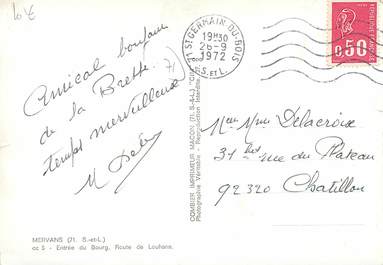 10 €
Amical bonjour
de la Bresse
temps merveilleux
M
71 ST GERMAIN-DU-BOIS
19H30
26-9
1972
S. et L.
0,50
Delacroix
31 bis rue du Plateau
92320 Chatillon
COMBIER IMPRIMEUR MACON (71. S.-&-L.)
Photographie Véritable - Reproduction Interdite
MERVANS (71. S.-et-L.)
cc 5 - Entrée du Bourg, Route de Louhans.